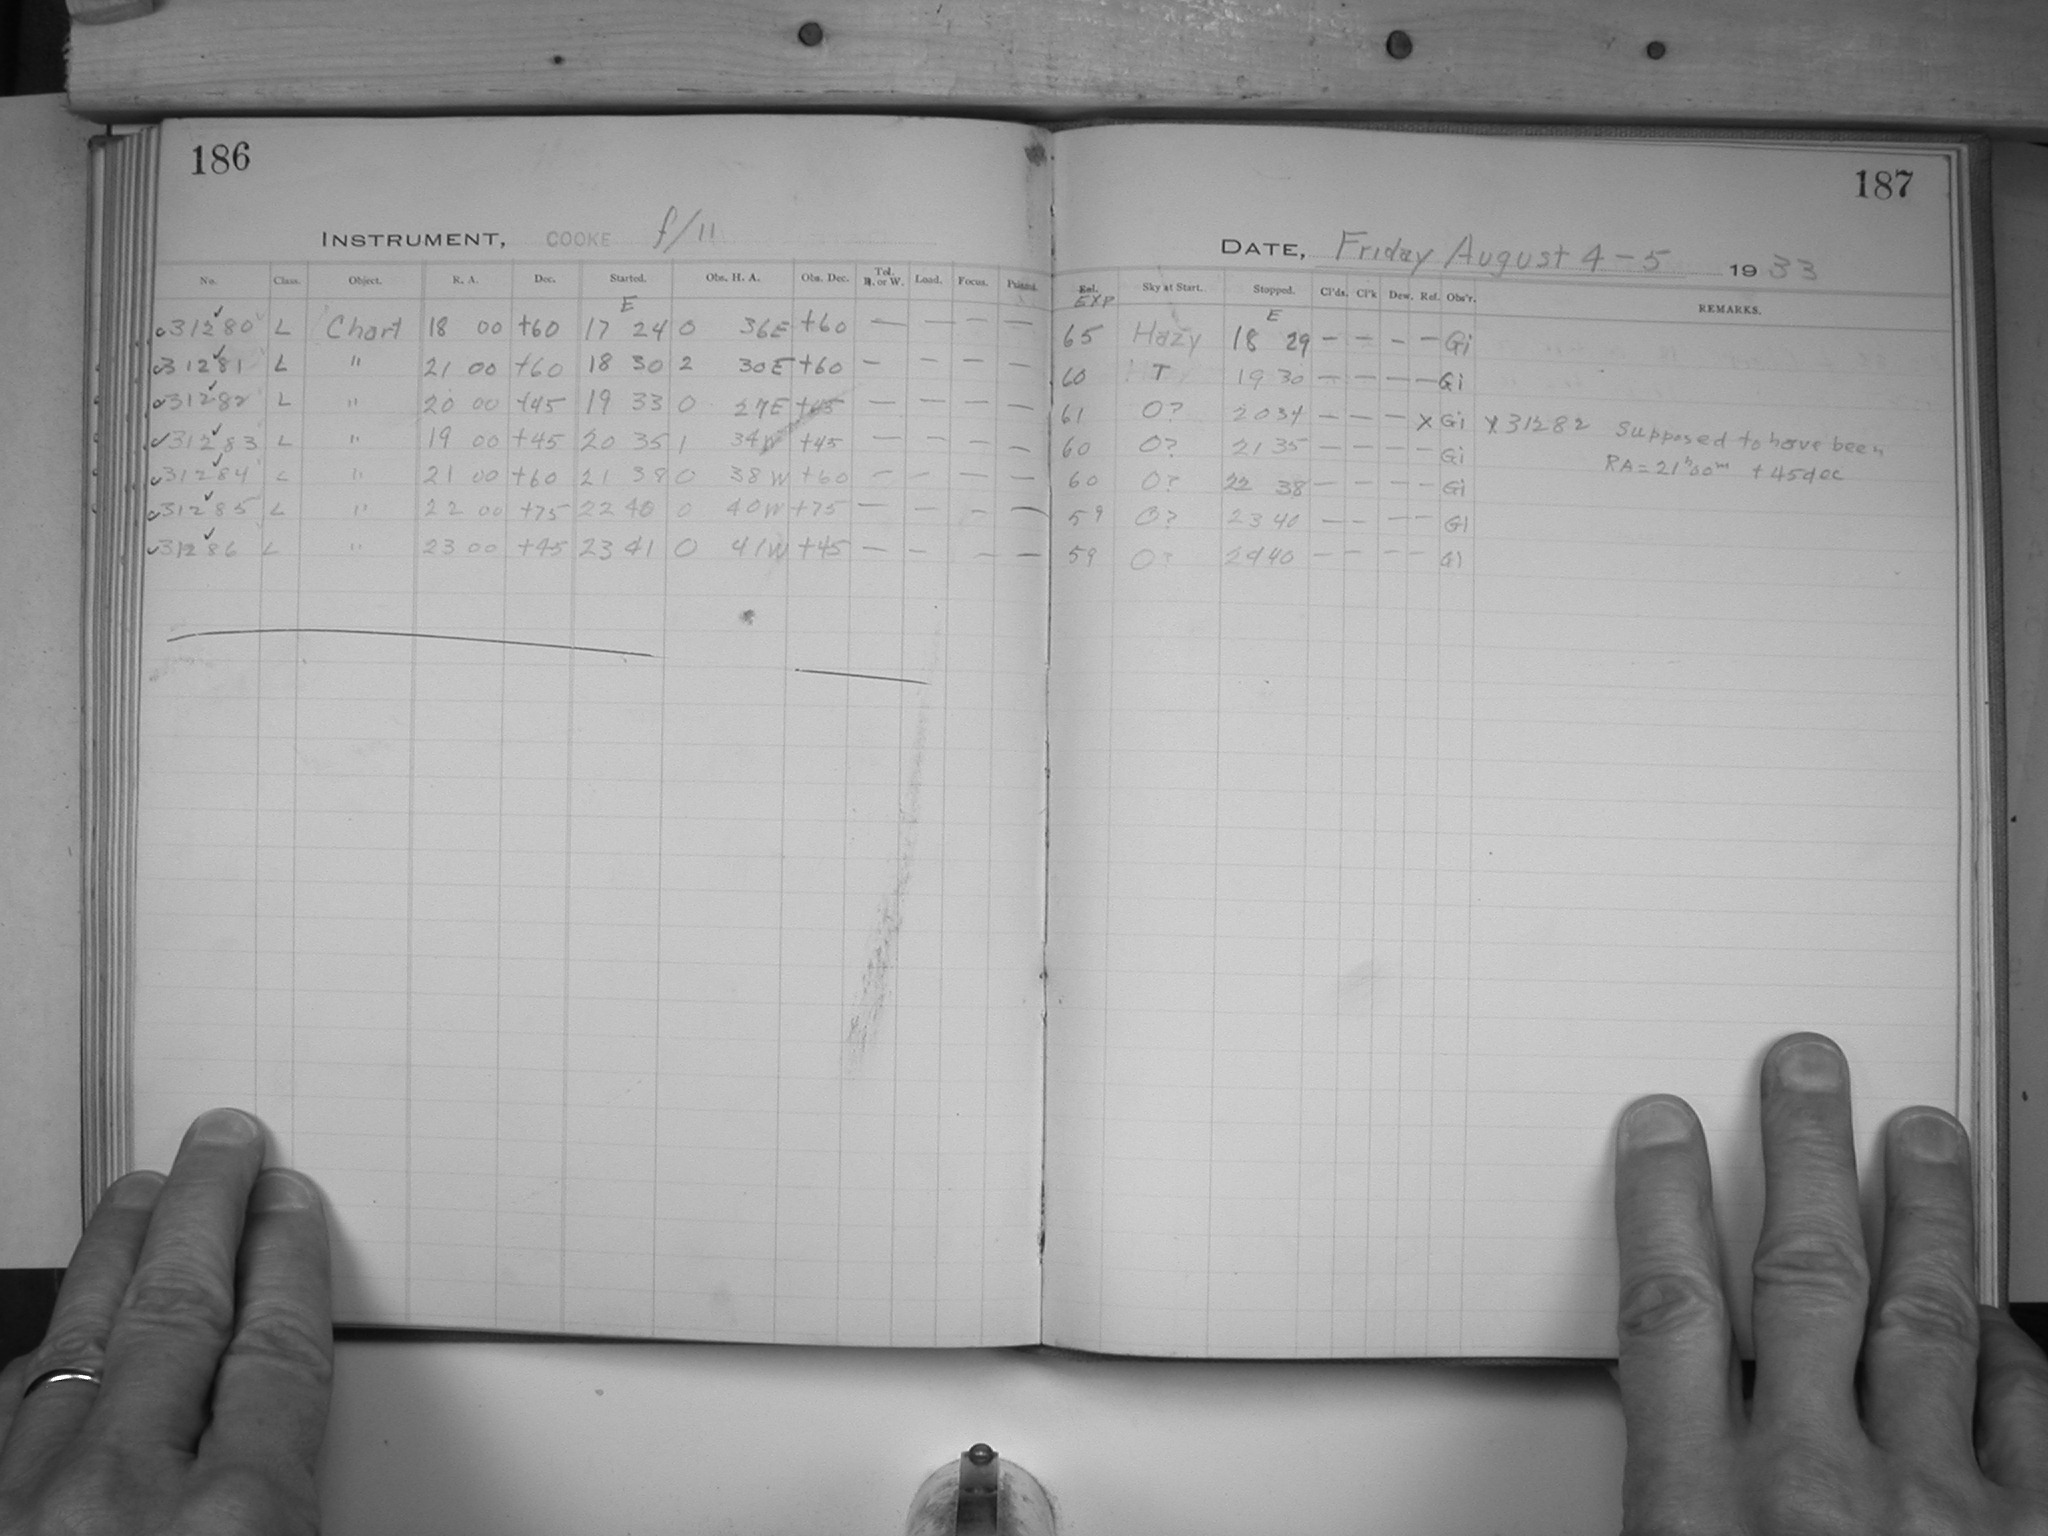 186
187
INSTRUMENT, COOKE f/11
DATE, Friday August 4-5 1933
No. Class. Object. R. A. Dec. Started. Obs. H. A. Obs. Dec. Tel. E. or W. Load. Focus. Pointed. Rel. Sky at Start. Stopped. Cl'ds. Cl'k Dew. Ref. Obs'r. REMARKS.
E EXP E
31280 L Chart 18 00 +60 17 24 0 36E +60 — — — — 65 Hazy 18 29 — — — — Gi
31281 L " 21 00 +60 18 30 2 30E +60 — — — — 60 T 19 30 — — — — Gi
31282 L " 20 00 +45 19 33 0 27E +45 — — — — 61 O? 20 34 — — — X Gi X 31282 Supposed to have been
31283 L " 19 00 +45 20 35 1 34W +45 — — — — 60 O? 21 35 — — — — Gi RA = 21h00m +45 dec
31284 L " 21 00 +60 21 38 0 38W +60 — — — — 60 O? 22 38 — — — — Gi
31285 L " 22 00 +75 22 40 0 40W +75 — — — — 59 O? 23 40 — — — — Gi
31286 L " 23 00 +45 23 41 0 41W +45 — — — — 59 O? 24 40 — — — — Gi